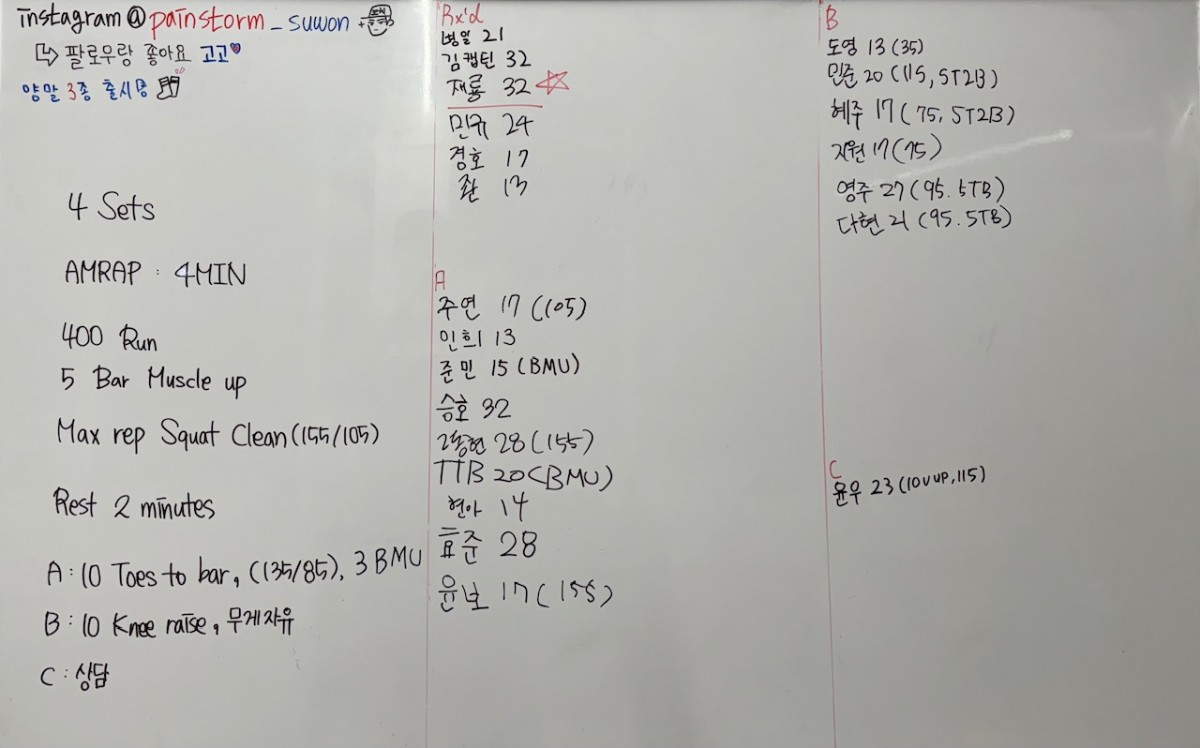 instagram @ painstorm _ suwon
↳ 팔로우랑 좋아요 고고♥
양말 3종 출시용
4 Sets
AMRAP : 4MIN
400 Run
5 Bar Muscle up
Max rep Squat Clean (155/105)
Rest 2 minutes
A : 10 Toes to bar, (135/85), 3 BMU
B : 10 Knee raise, 무게자유
C : 상담
Rx'd
병일 21
김캡틴 32
재룡 32 ☆
민규 24
경호 17
준 13
A
주연 17 (105)
인희 13
준민 15 (BMU)
승호 32
고동현 28 (155)
TTB 20 (BMU)
현아 14
효준 28
윤보 17 (155)
B
도영 13 (35)
민준 20 (115, 5T2B)
혜주 17 (75, 5T2B)
지원 17 (75)
영주 27 (95. 5TB)
다현 21 (95. 5TB)
C
윤우 23 (10 V UP, 115)